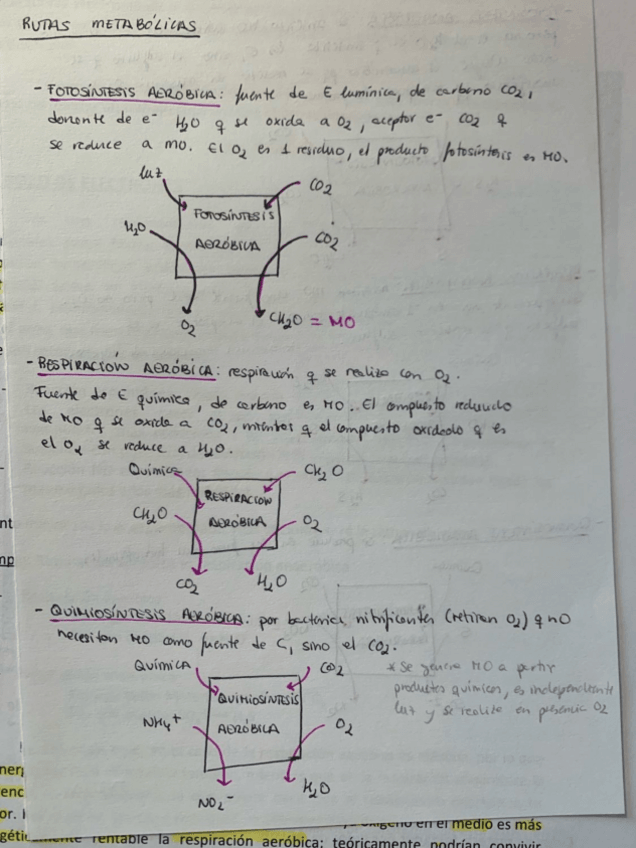 RUTAS METABÓLICAS
- FOTOSÍNTESIS AERÓBICA: fuente de E lumínica, de carbono CO2,
donante de e- H2O q se oxida a O2, aceptor e- CO2 q
se reduce a MO. El O2 es 1 residuo, el producto fotosíntesis es MO.
luz
CO2
FOTOSÍNTESIS
H2O
CO2
AERÓBICA
O2
CH2O = MO
- RESPIRACIÓN AERÓBICA: respiración q se realiza con O2.
Fuente de E química, de carbono es MO. El compuesto reducido
de MO q se oxida a CO2, mientras q el compuesto oxidado q es
el O2 se reduce a H2O.
Química
CH2O
RESPIRACIÓN
CH2O
AERÓBICA
O2
CO2
H2O
- QUIMIOSÍNTESIS AERÓBICA: por bacterias nitrificantes (retiran O2) q no
necesitan MO como fuente de C, sino el CO2.
Química
CO2
* Se genera MO a partir
QUIMIOSÍNTESIS
productos químicos, es independiente
luz y se realiza en presencia O2
NH4+
AERÓBICA
O2
NO2-
H2O
oxígeno en el medio es más
rentable la respiración aeróbica; teóricamente podrían convivir